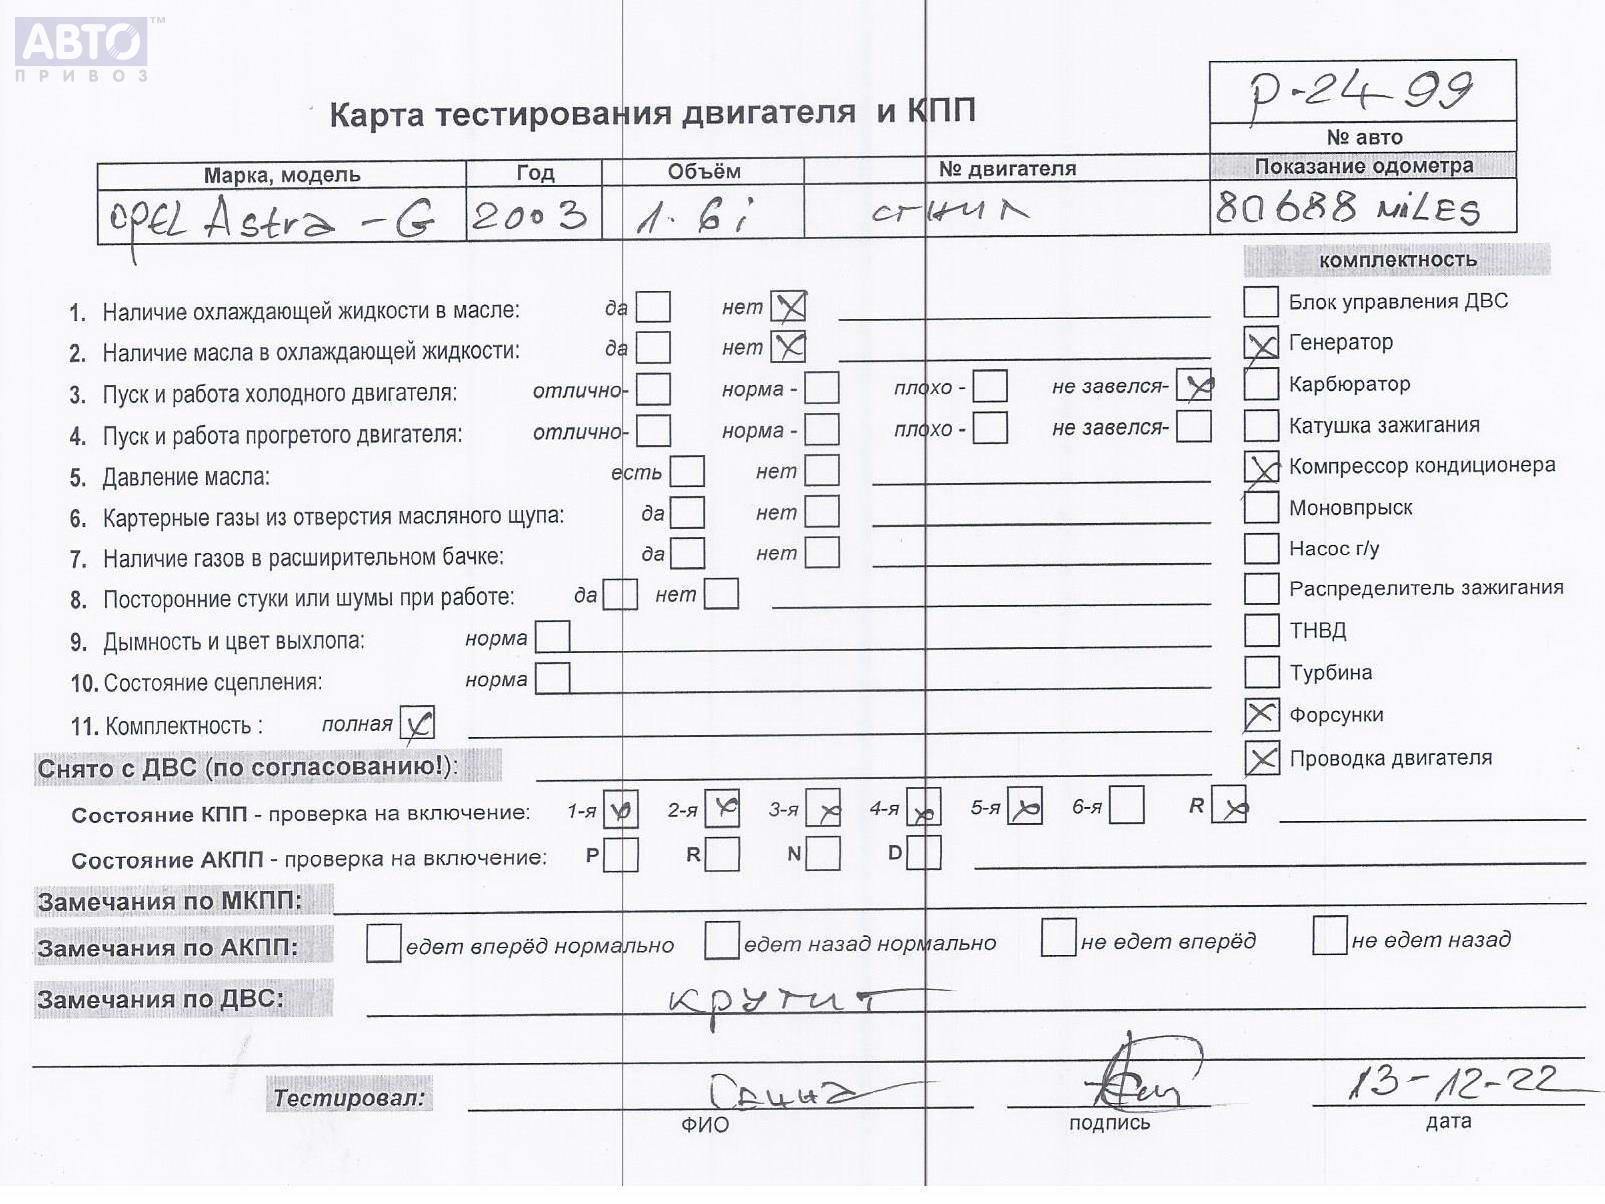 АВТО™
ПРИВОЗ
Р-24-99
Карта тестирования двигателя и КПП
№ авто
Марка, модель Год Объём № двигателя Показание одометра
OPEL Astra - G 2003 1.6i сгнил 80688 MILES
комплектность
1. Наличие охлаждающей жидкости в масле: да нет
Блок управления ДВС
2. Наличие масла в охлаждающей жидкости: да нет
Генератор
3. Пуск и работа холодного двигателя: отлично- норма - плохо - не завелся-
Карбюратор
4. Пуск и работа прогретого двигателя: отлично- норма - плохо - не завелся-
Катушка зажигания
5. Давление масла: есть нет
Компрессор кондиционера
6. Картерные газы из отверстия масляного щупа: да нет
Моновпрыск
7. Наличие газов в расширительном бачке: да нет
Насос г/у
8. Посторонние стуки или шумы при работе: да нет
Распределитель зажигания
9. Дымность и цвет выхлопа: норма
ТНВД
10. Состояние сцепления: норма
Турбина
11. Комплектность : полная
Форсунки
Снято с ДВС (по согласованию!):
Проводка двигателя
Состояние КПП - проверка на включение: 1-я 2-я 3-я 4-я 5-я 6-я R
Состояние АКПП - проверка на включение: P R N D
Замечания по МКПП:
Замечания по АКПП: едет вперёд нормально едет назад нормально не едет вперёд не едет назад
Замечания по ДВС: крутит
Тестировал: 13-12-22
ФИО подпись дата